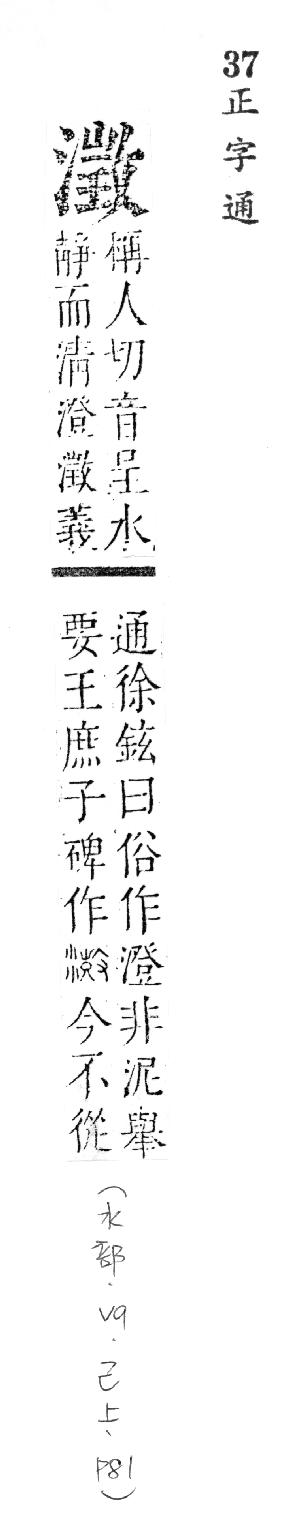 37正字通
澂
稱人切音呈水
靜而淸澄澂義
通徐鉉曰俗作澄非泥舉
要王庶子碑作澂今不從
(水部、V9、己上、P81)